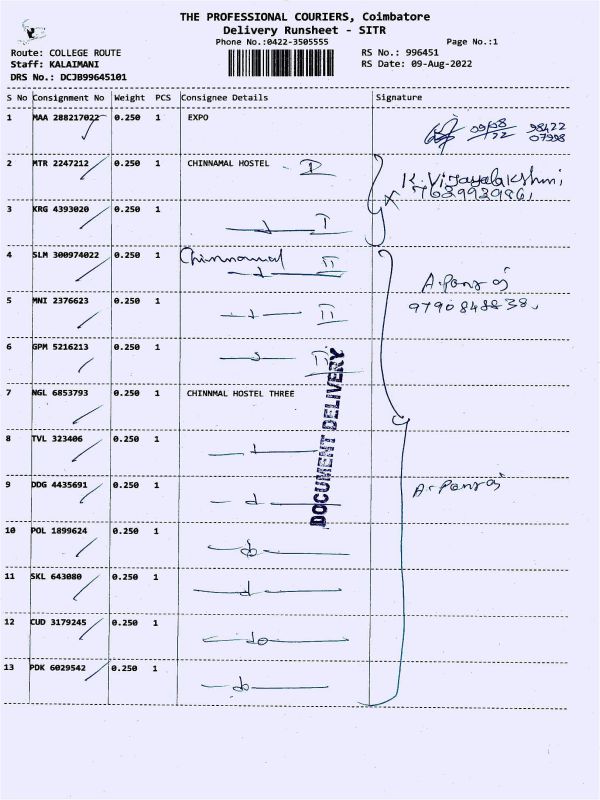 THE PROFESSIONAL COURIERS, Coimbatore
Delivery Runsheet - SITR
Phone No.:0422-3505555 Page No.:1
Route: COLLEGE ROUTE RS No.: 996451
Staff: KALAIMANI RS Date: 09-Aug-2022
DRS No.: DCJB99645101
S No Consignment No Weight PCS Consignee Details Signature
1 MAA 288217022 0.250 1 EXPO
09/08/22 98422
07998
2 MTR 2247212 0.250 1 CHINNAMAL HOSTEL I
K. Vijayalakshmi,
3 KRG 4393020 0.250 1 I
4 SLM 300974022 0.250 1 Chinnamal II
5 MNI 2376623 0.250 1 II
6 GPM 5216213 0.250 1 II
7 NGL 6853793 0.250 1 CHINNMAL HOSTEL THREE
DOCUMENT DELIVERY
8 TVL 323406 0.250 1
9 DDG 4435691 0.250 1
10 POL 1899624 0.250 1
11 SKL 643080 0.250 1
12 CUD 3179245 0.250 1
13 PDK 6029542 0.250 1